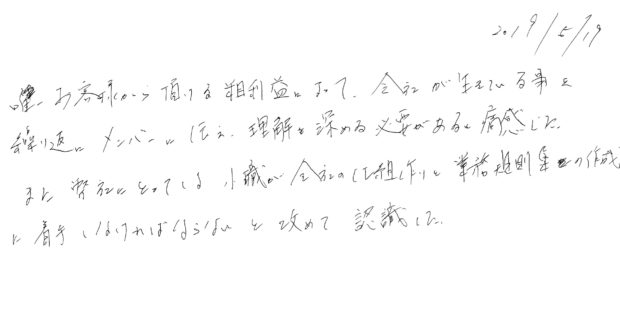 2019/5/19
唯、お客様から頂ける粗利益によって、会社が生きている事を
繰り返しメンバーに伝え、理解を深める必要があると痛感した。
また弊社にとっても 組織が会社の仕組作りと業務規則集の作成
に着手しなければならないと改めて認識した。